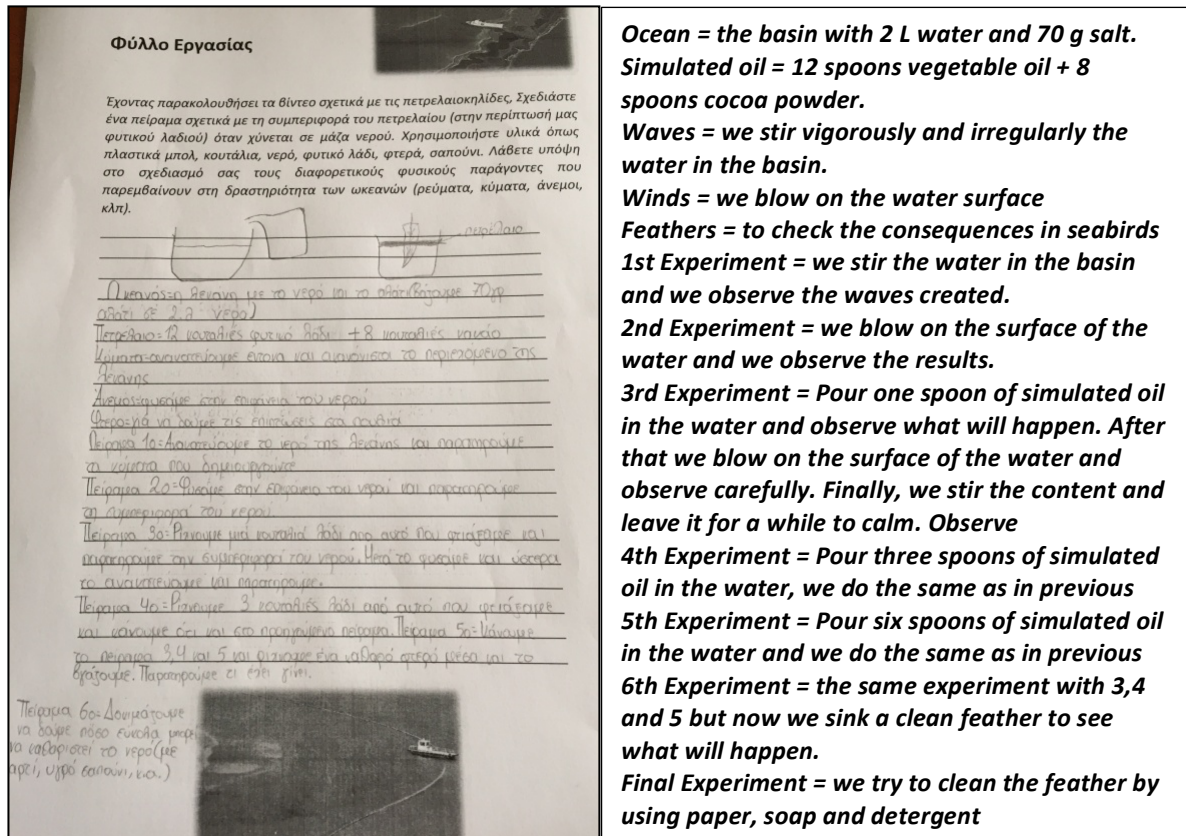 Φύλλο Εργασίας
Έχοντας παρακολουθήσει τα βίντεο σχετικά με τις πετρελαιοκηλίδες, Σχεδιάστε
ένα πείραμα σχετικά με τη συμπεριφορά του πετρελαίου (στην περίπτωσή μας
φυτικού λαδιού) όταν χύνεται σε μάζα νερού. Χρησιμοποιήστε υλικά όπως
πλαστικά μπολ, κουτάλια, νερό, φυτικό λάδι, φτερά, σαπούνι. Λάβετε υπόψη
στο σχεδιασμό σας τους διαφορετικούς φυσικούς παράγοντες που
παρεμβαίνουν στη δραστηριότητα των ωκεανών (ρεύματα, κύματα, άνεμοι,
κλπ).
πετρέλαιο
Ωκεανός=η λεκάνη με το νερό και το αλάτι(βάζουμε 70γρ
αλάτι σε 2λ νερό)
Πετρέλαιο=12 κουταλιές φυτικό λάδι +8 κουταλιές κακάο
Κύματα=ανακατεύουμε έντονα και ακανόνιστα το περιεχόμενο της
λεκάνης
Άνεμος=φυσάμε στην επιφάνεια του νερού
Φτερό=για να δούμε τις επιπτώσεις στα πουλιά
Πείραμα 1ο=Ανακατεύουμε το νερό της λεκάνης και παρατηρούμε
τα κύματα που δημιουργούνται
Πείραμα 2ο=Φυσάμε στην επιφάνεια του νερού και παρατηρούμε
τη συμπεριφορά του νερού
Πείραμα 3ο=Ρίχνουμε μιά κουταλιά λάδι από αυτό που φτιάξαμε και
παρατηρούμε την συμπεριφορά του νερού. Μετά το φυσάμε και ύστερα
το ανακατεύουμε και παρατηρούμε.
Πείραμα 4ο=Ρίχνουμε 3 κουταλιές λάδι από αυτό που φτιάξαμε
και κάνουμε ότι και στο προηγούμενο πείραμα. Πείραμα 5ο=Κάνουμε
το πείραμα 3,4 και 5 και ρίχνουμε ένα καθαρό φτερό μέσα και το
βγάζουμε. Παρατηρούμε τι έχει γίνει.
Πείραμα 6ο=Δοκιμάζουμε
να δούμε πόσο εύκολα μπορεί
να καθαριστεί το νερό(με
χαρτί, υγρό σαπούνι, κ.α.)
Ocean = the basin with 2 L water and 70 g salt.
Simulated oil = 12 spoons vegetable oil + 8
spoons cocoa powder.
Waves = we stir vigorously and irregularly the
water in the basin.
Winds = we blow on the water surface
Feathers = to check the consequences in seabirds
1st Experiment = we stir the water in the basin
and we observe the waves created.
2nd Experiment = we blow on the surface of the
water and we observe the results.
3rd Experiment = Pour one spoon of simulated oil
in the water and observe what will happen. After
that we blow on the surface of the water and
observe carefully. Finally, we stir the content and
leave it for a while to calm. Observe
4th Experiment = Pour three spoons of simulated
oil in the water, we do the same as in previous
5th Experiment = Pour six spoons of simulated oil
in the water and we do the same as in previous
6th Experiment = the same experiment with 3,4
and 5 but now we sink a clean feather to see
what will happen.
Final Experiment = we try to clean the feather by
using paper, soap and detergent